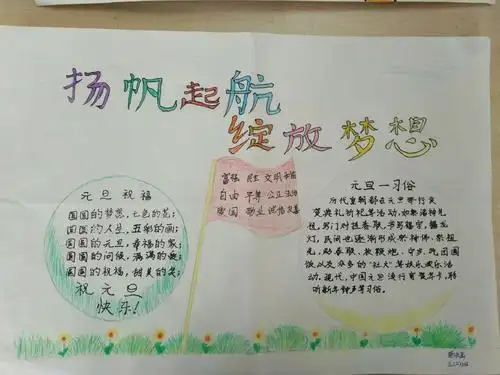 扬帆起航
绽放梦想
元旦祝福
圆圆的梦想,七色的花;
圆圆的人生,五彩的画;
圆圆的元旦,幸福的家;
圆圆的问候,满满的爱;
圆圆的祝福,甜美的笑;
祝元旦
快乐!
富强 民主 文明 和谐
自由 平等 公正 法治
爱国 敬业 诚信 友善
元旦一习俗
历代皇朝都在元旦举行庆
贺典礼祈祀等活动,如祭诸神先
祖,写门对挂春联,书写福字、舞龙
灯,民间也逐渐形成祭神佛、祭祖
先、贴春联、放鞭炮、守岁、吃团圆
饭以及众多的“社火”等娱乐欢乐活
动。现代,中国元旦流行寄贺年卡,聆
听新年钟声等习俗。